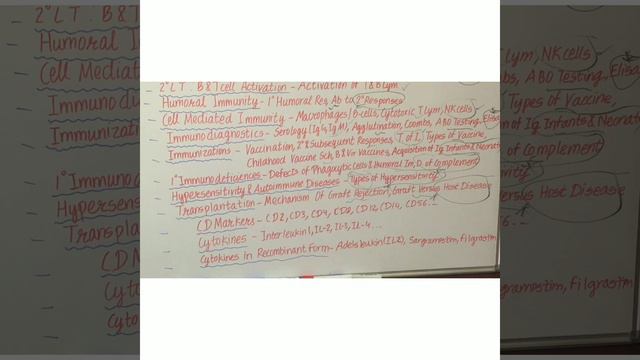 2° L T. B & T cell Activation - Activation of T & B Lym
Humoral Immunity - 1° Humoral Res, Ab to 2° Responses
Cell Mediated Immunity - Macrophages / B-cells, Cytotoxic T Lym, NK cells
Immunodiagnostics - Serology (IgG, IgM), Agglutination, Coombs, ABO Testing, Elisa
Immunizations - Vaccination, 2° & Subsequent Responses, T of I, Types of Vaccine,
Childhood Vaccine Sch, B & Vir Vaccines, Acquisition of Ig. Infants & Neonat
1° Immunodeficiencies - Defects of Phagocytic Cells & Humoral Im, D. of Complement
Hypersensitivity & Autoimmune Diseases - Types of Hypersensitivity
Transplantation - Mechanism Of Graft Rejection, Graft Versus Host Disease
CD Markers - CD2, CD3, CD4, CD8, CD12, CD14, CD56..
Cytokines - Interleukin 1, IL-2, IL-3, IL-4...
Cytokines In Recombinant Form - Adelsleukin (IL2), Sargramostim, Filgrastim